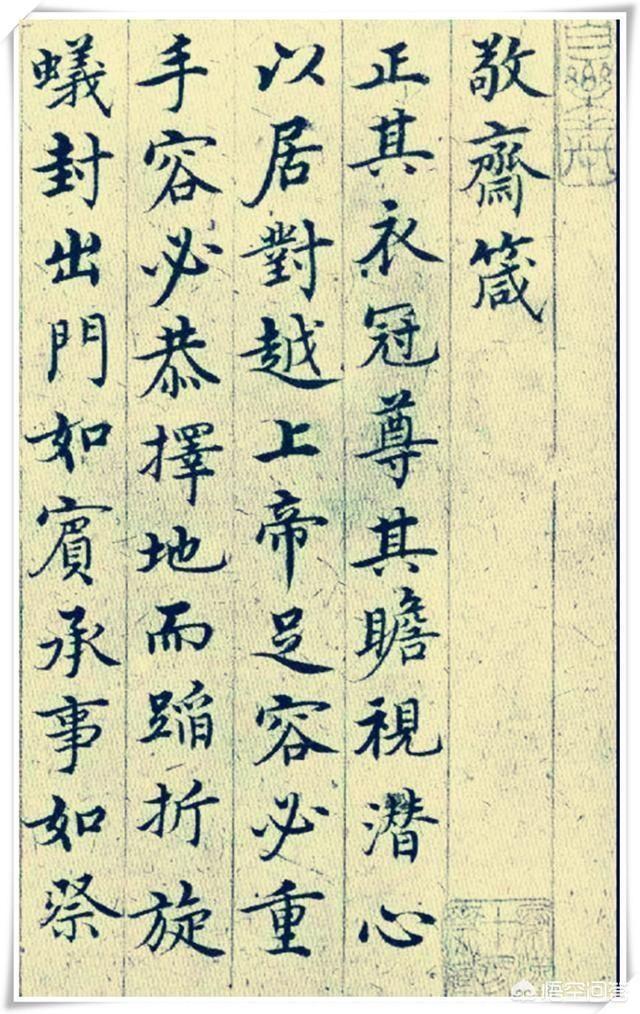 敬齋箴
正其衣冠尊其瞻視潛心
以居對越上帝足容必重
手容必恭擇地而蹈折旋
蟻封出門如賓承事如祭
悟空问答